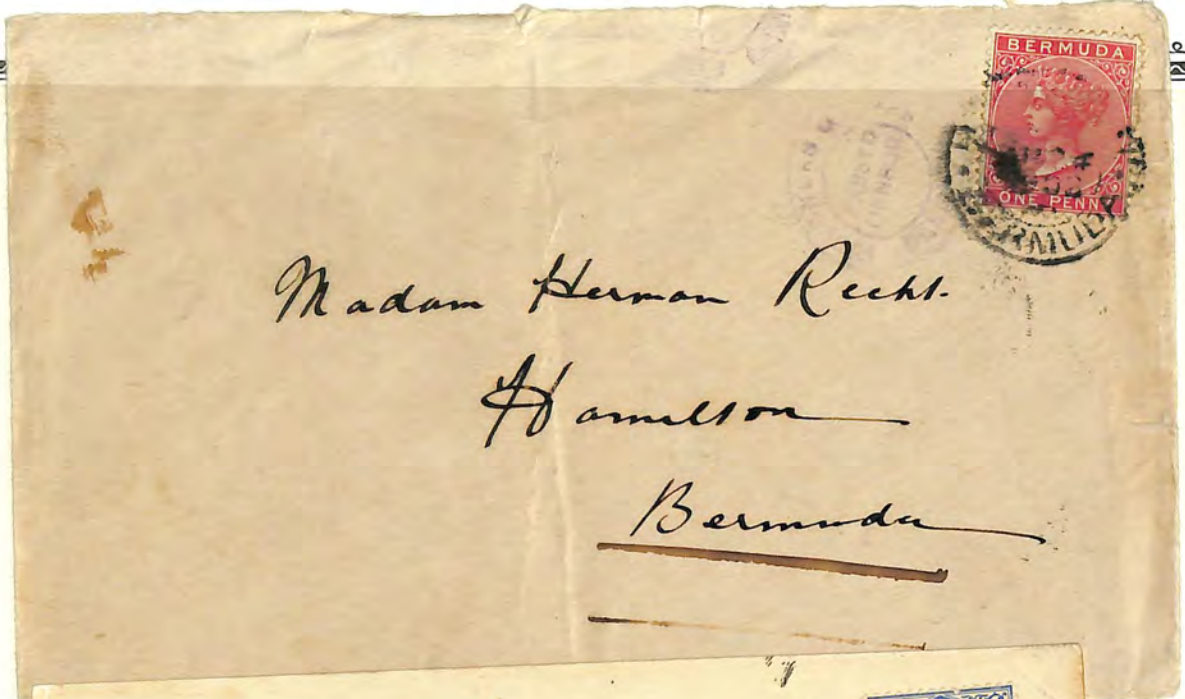 BERMUDA
ONE PENNY
BERMUDA
Madam Herman Recht.
Hamilton
Bermuda